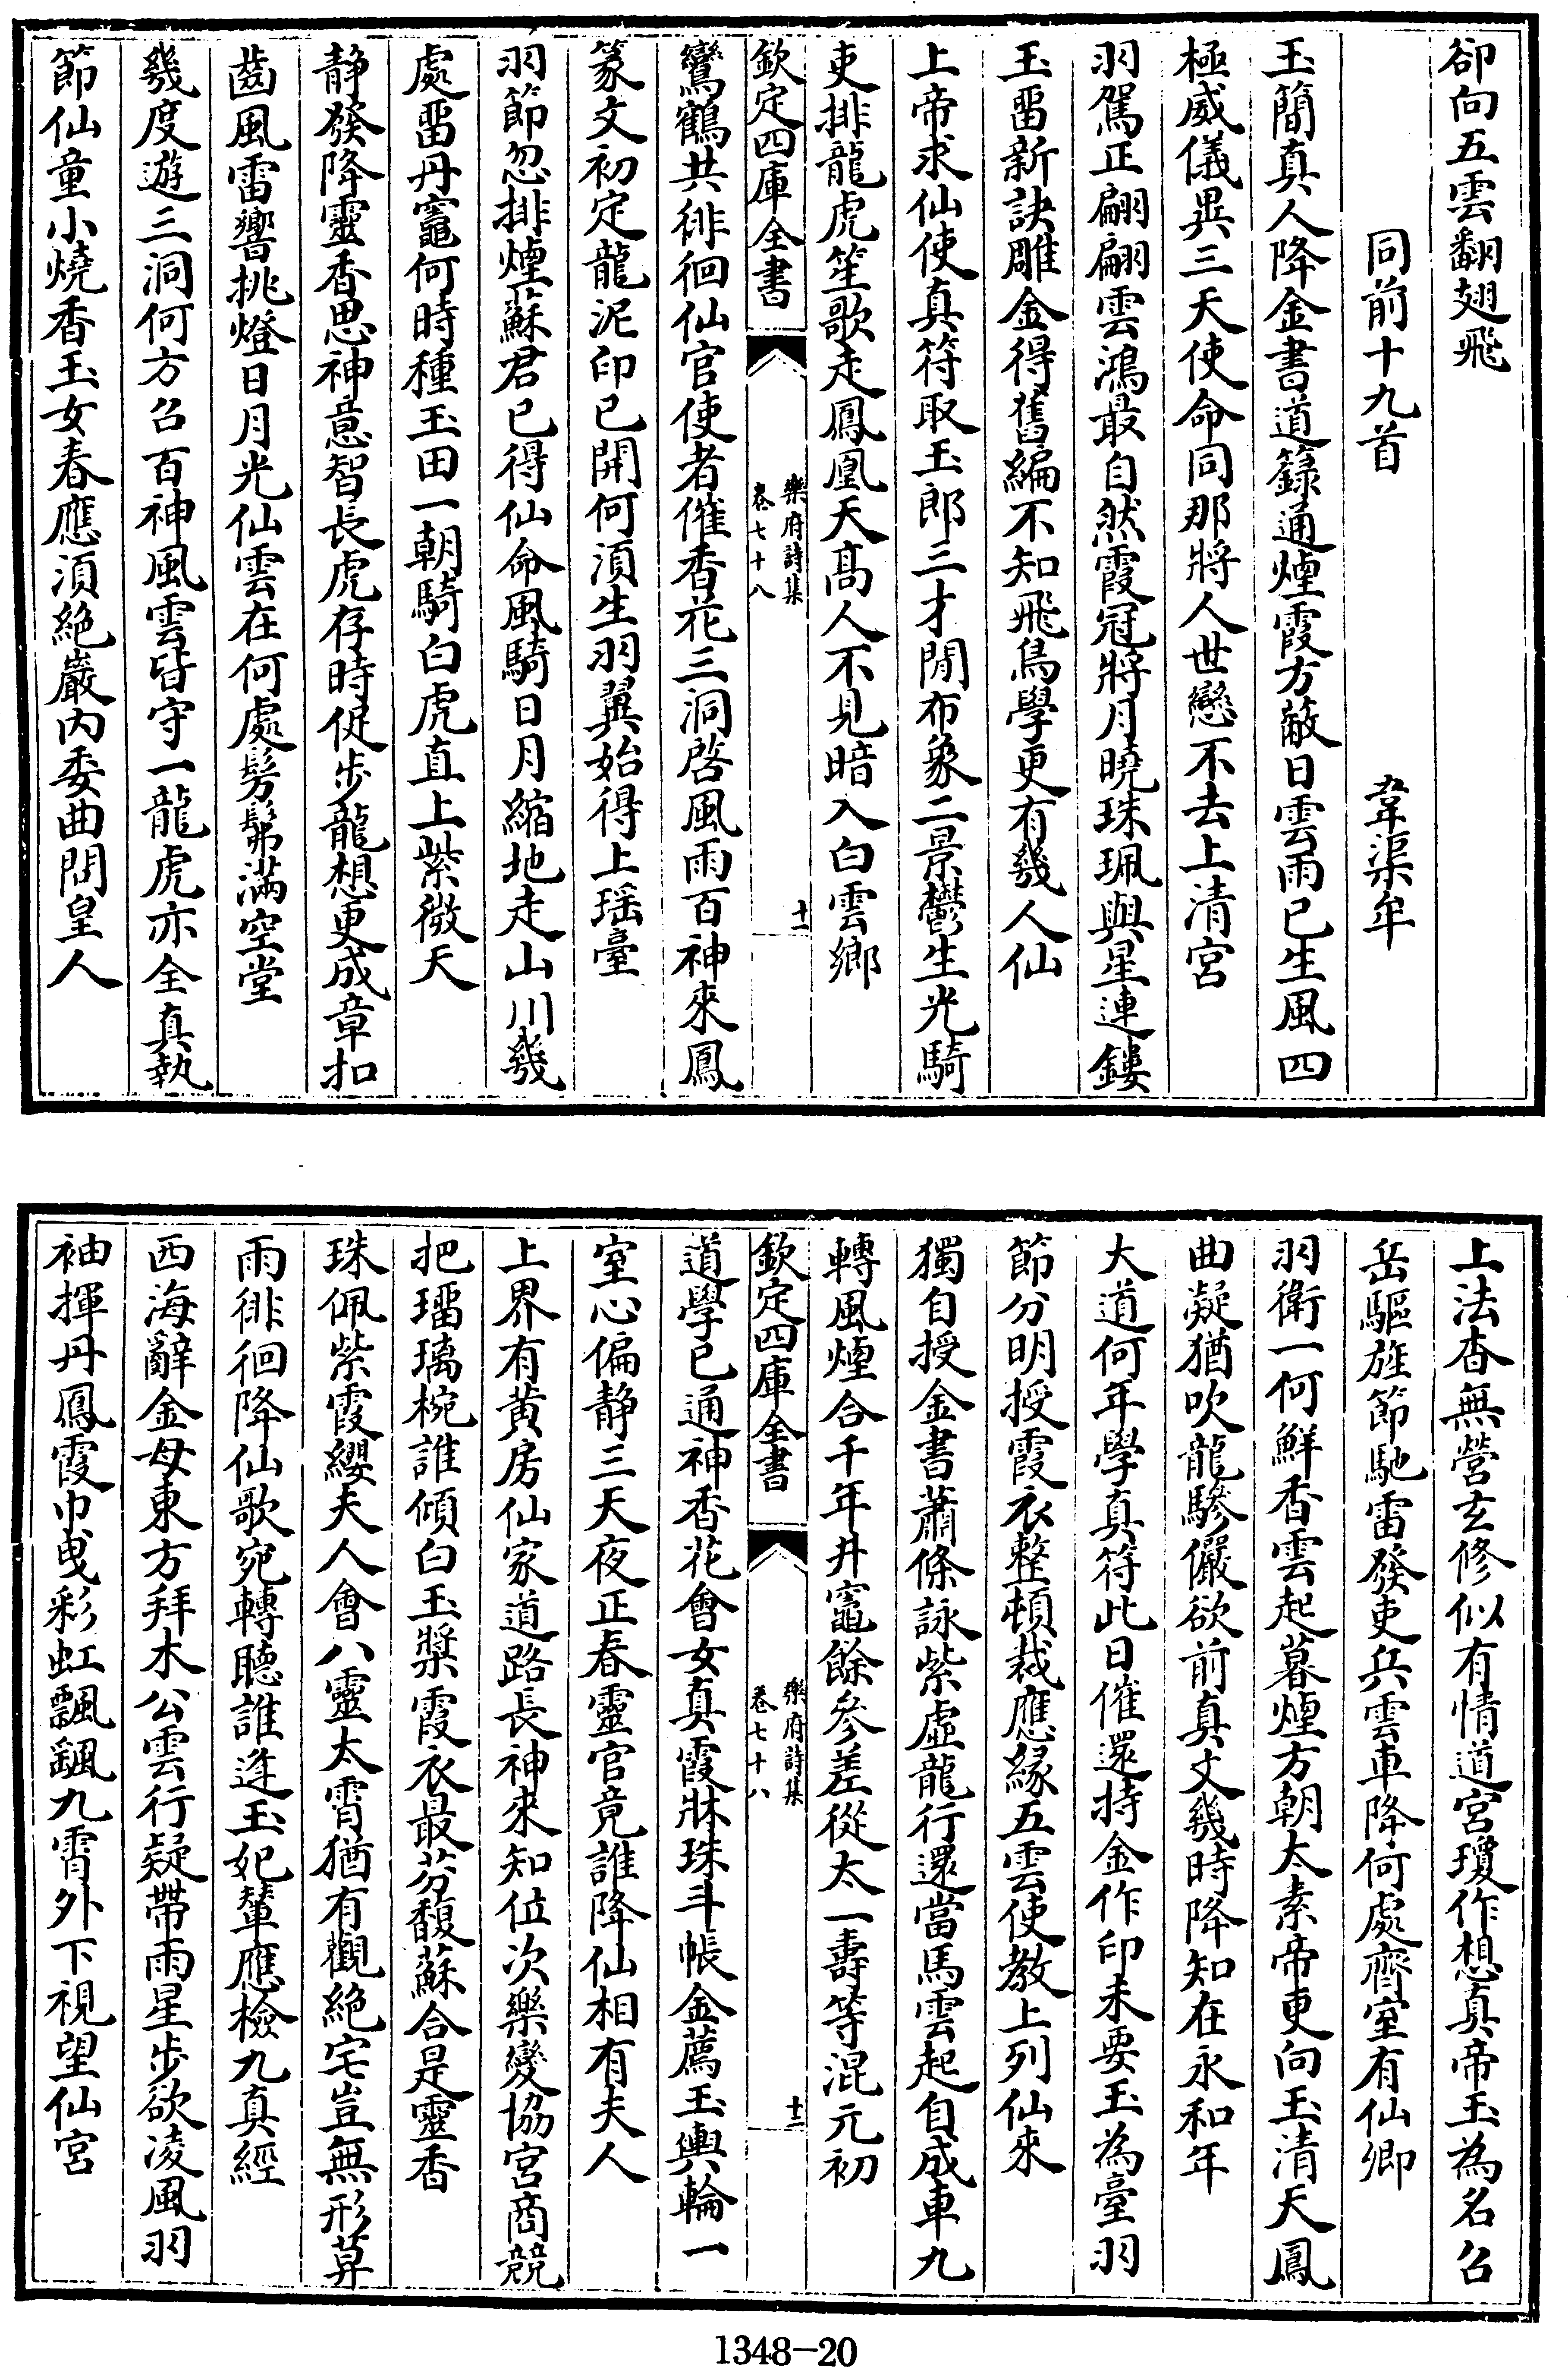 卻向五雲翻翅飛
同前十九首 韋渠牟
玉簡真人降金書道籙通煙霞方蔽日雲雨已生風四
極威儀異三天使命同那將人世戀不去上清宮
羽駕正翩翩雲鴻最自然霞冠將月曉珠珮與星連鏤
玉畱新訣雕金得舊編不知飛鳥學更有幾人仙
上帝求仙使真符取玉郎三才閒布象二景鬱生光騎
吏排龍虎笙歌走鳳凰天高人不見暗入白雲鄉
欽定四庫全書 樂府詩集 卷七十八 十一
鸞鶴共徘徊仙官使者催香花三洞啓風雨百神來鳳
篆文初定龍泥印已開何須生羽翼始得上瑶臺
羽節忽排煙蘇君已得仙命風騎日月縮地走山川幾
處畱丹竈何時種玉田一朝騎白虎直上紫微天
静發降靈香思神意智長虎存時促步龍想更成章扣
齒風雷響挑燈日月光仙雲在何處髣髴滿空堂
幾度遊三洞何方召百神風雲皆守一龍虎亦全真執
節仙童小燒香玉女春應須絶巖內委曲問皇人
上法杳無營玄修似有情道宮瓊作想真帝玉為名召
岳驅旌節馳雷發吏兵雲車降何處齊室有仙卿
羽衛一何鮮香雲起暮煙方朝太素帝更向玉清天鳳
曲凝猶吹龍驂儼欲前真文幾時降知在永和年
大道何年學真符此日催還持金作印未要玉為臺羽
節分明授霞衣整頓裁應緣五雲使教上列仙來
獨自授金書蕭條詠紫虛龍行還當馬雲起自成車九
轉風煙合千年井竈餘參差從太一壽等混元初
欽定四庫全書 樂府詩集 卷七十八 十二
道學已通神香花會女真霞牀珠斗帳金薦玉輿輪一
室心偏静三天夜正春靈官竟誰降仙相有夫人
上界有黄房仙家道路長神來知位次樂變協宮商競
把璢璃椀誰傾白玉漿霞衣最芬馥蘇合是靈香
珠佩紫霞纓夫人會八靈太霄猶有觀絶宅豈無形莫
雨徘徊降仙歌宛轉聽誰逢玉妃輦應檢九真經
西海辭金母東方拜木公雲行疑帶雨星步欲凌風羽
袖揮丹鳳霞巾曳彩虹飄颻九霄外下視望仙宮
1348-20